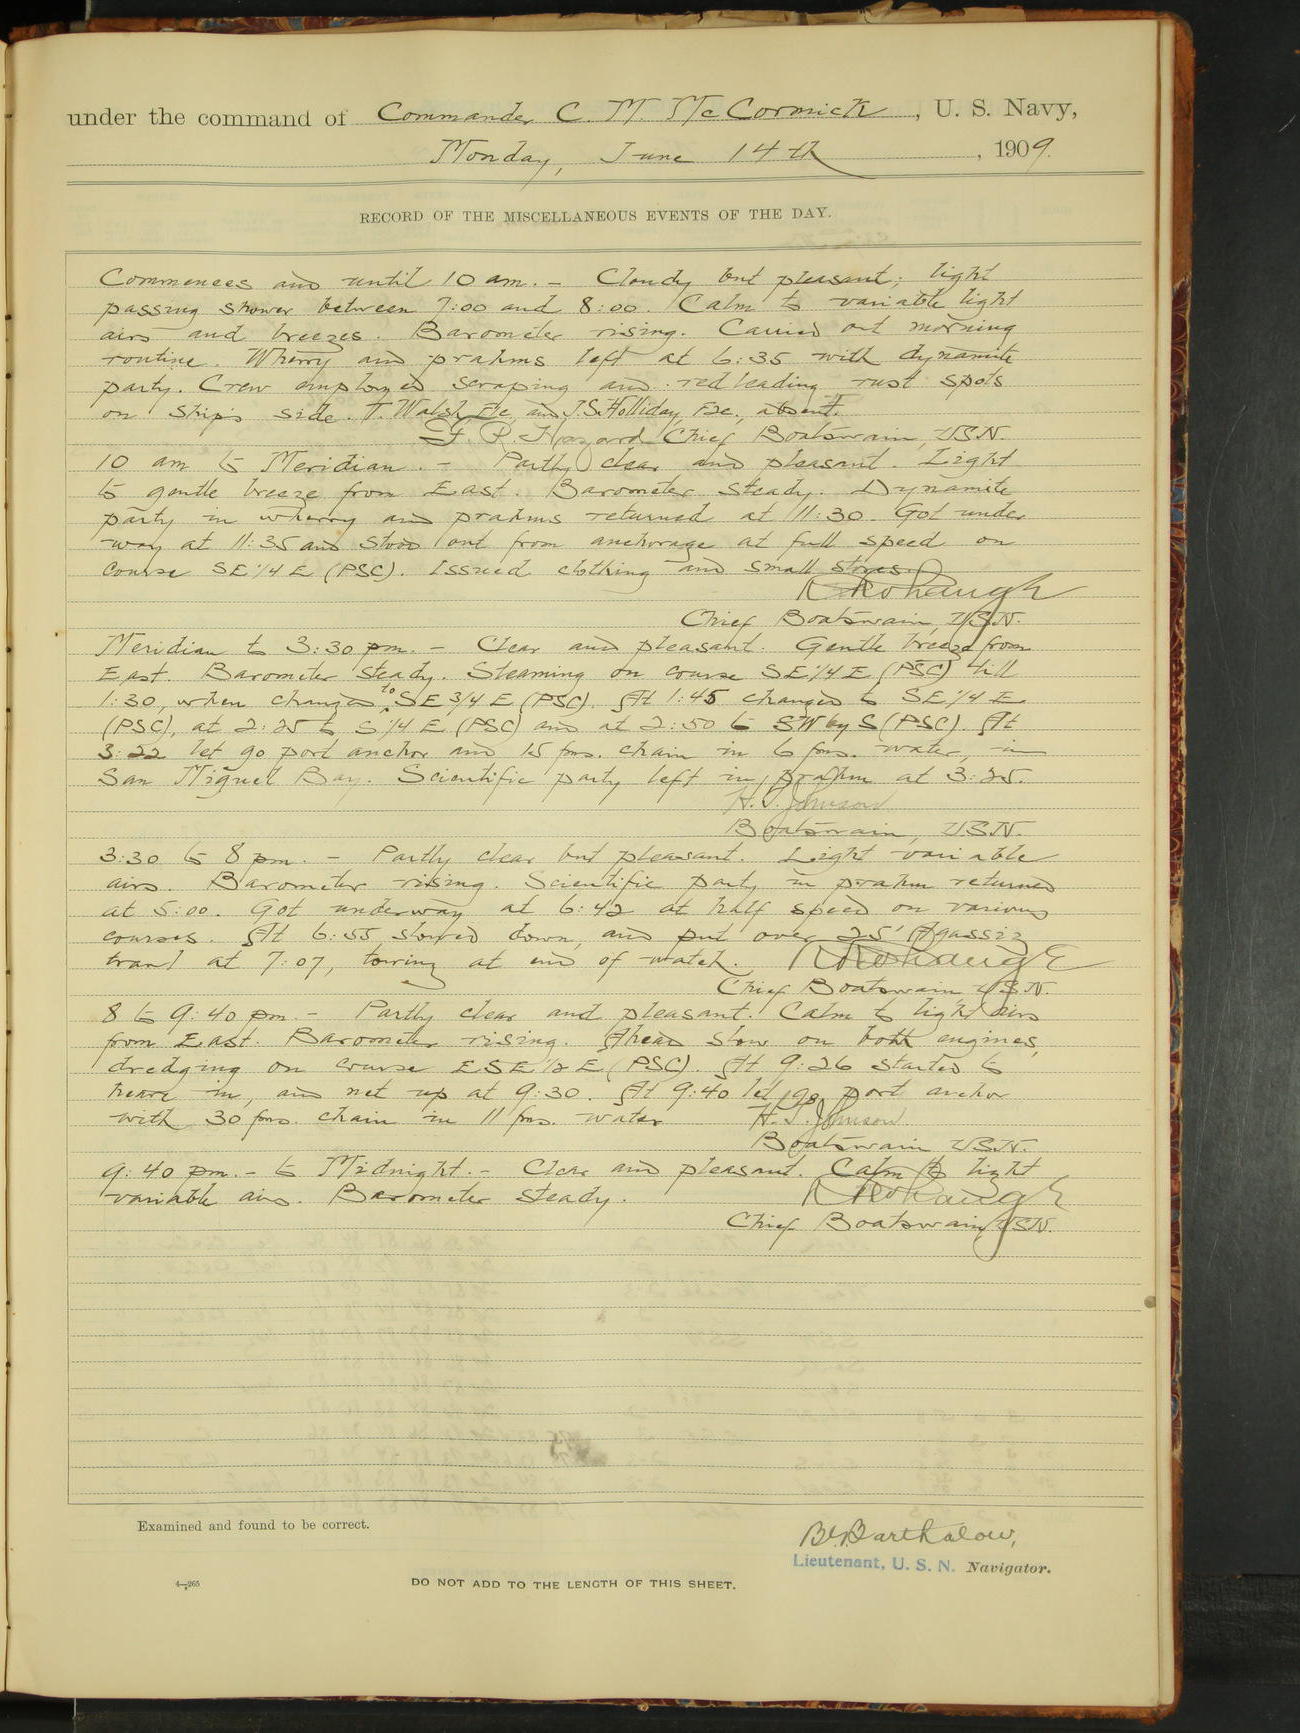 under the command of Commander C. M. McCormick, U. S. Navy,
Monday, June 14th, 1909.
RECORD OF THE MISCELLANEOUS EVENTS OF THE DAY.
Commences and until 10 am. – Cloudy but pleasant; light
passing shower between 7:00 and 8:00. Calm to variable light
airs and breezes. Barometer rising. Carried out morning
routine. Wherry and prahms left at 6:35 with dynamite
party. Crew employed scraping and redleading rust spots
on ship's side. T. Walsh F1c, and J.S. Holliday, F2c, absent.
F. R. Hazard Chief Boatswain, USN.
10 am to Meridian. – Partly clear and pleasant. Light
to gentle breeze from East. Barometer steady. Dynamite
party in wherry and prahms returned at 11:30. Got under
way at 11:35 and stood out from anchorage at full speed on
course SE 1/4 E (PSC). Issued clothing and small stores.
Chief Boatswain, USN.
Meridian to 3:30 pm. – Clear and pleasant. Gentle breeze from
East. Barometer steady. Steaming on course SE 1/4 E (PSC) till
1:30, when changed to SE 3/4 E (PSC). At 1:45 changed to SE 1/4 E
(PSC), at 2:25 to S 1/4 E (PSC) and at 2:50 to SW by S (PSC). At
3:22 let go port anchor and 15 fms. chain in 6 fms. water, in
San Miguel Bay. Scientific party left in prahm at 3:25.
H. S. Johnson
Boatswain, USN.
3:30 to 8 pm. – Partly clear but pleasant. Light variable
airs. Barometer rising. Scientific party in prahm returned
at 5:00. Got underway at 6:42 at half speed on various
courses. At 6:55 slowed down, and put over 25' Agassiz
trawl at 7:07, towing at end of watch.
Chief Boatswain USN.
8 to 9:40 pm. – Partly clear and pleasant. Calm to light airs
from East. Barometer rising. Ahead slow on both engines,
dredging on course ESE 1/2 E (PSC). At 9:26 started to
heave in, and net up at 9:30. At 9:40 let go port anchor
with 30 fms. chain in 11 fms. water H. S. Johnson
Boatswain USN.
9:40 pm. – to Midnight. – Clear and pleasant. Calm to light
variable airs. Barometer steady.
Chief Boatswain, USN.
Examined and found to be correct.
Barthalow,
Lieutenant, U. S. N. Navigator.
4—265
DO NOT ADD TO THE LENGTH OF THIS SHEET.